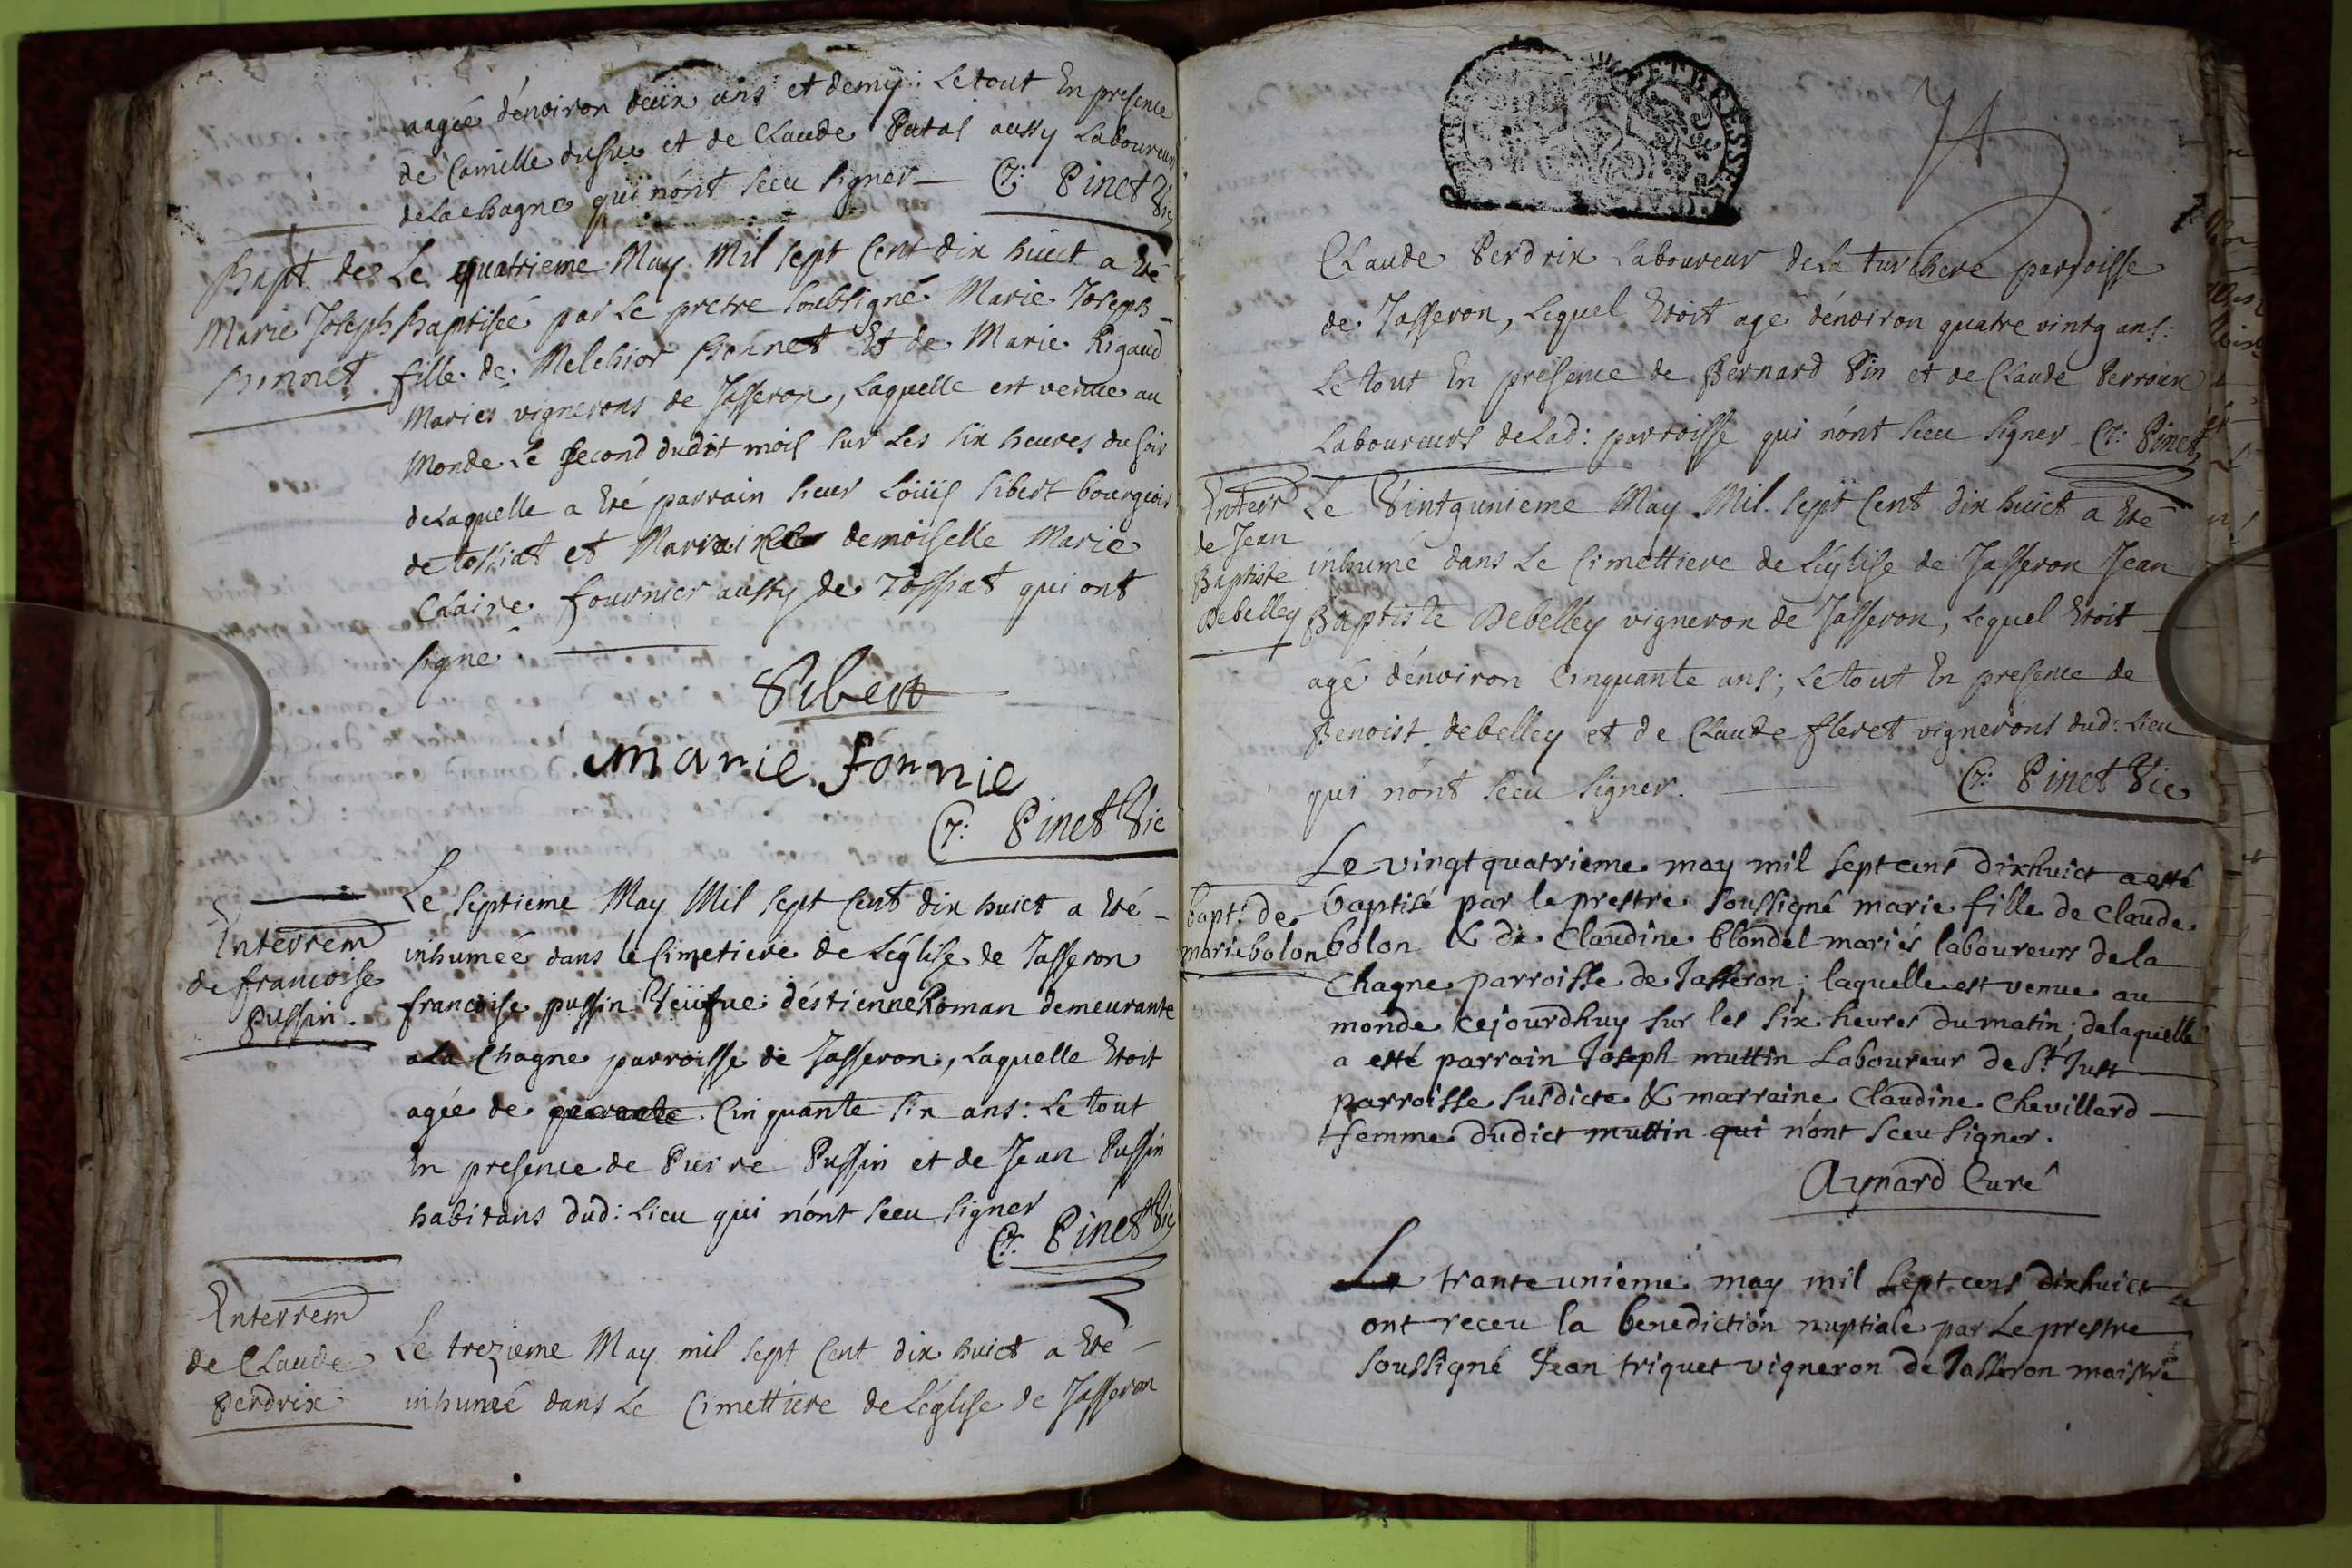 aagée d'environ deux ans et demy: Le tout En presence
de Camille dusue et de Claude Putal aussy Laboureurs
de La chagne qui n'ont sceu signer — C: Pinet Vic
Bapt de
Marie Joseph
Bonnet
Le quatrieme May Mil sept Cent dix huict a Eté
Baptisée par Le pretre soubsigné Marie Joseph -
fille de Melchior Bonnet Et de Marie Rigaud
Mariés vignerons de Jasseron, Laquelle est venue au
Monde Le second dudit mois sur Les six heures du soir
de Laquelle a Eté parrain sieur Loüis sibert bourgeois
de tossiat et Marraine demoiselle Marie
Claire fournier aussy de Tossiat qui ont
signé
Sibert
marie fornie
C: Pinet Vic
Enterrem
de francoise
Pussin.
Le septieme May Mil sept Cent dix huict a Eté -
inhumée dans le Cimetiere de L'église de Jasseron
francoise pussin Veüfue d'éstienne Roman demeurante
a La Chagne parroisse de Jasseron, Laquelle Etoit
agée de Cinquante six ans: Le tout
En presence de Pierre Pussin et de Jean Pussin
habitans dud: Lieu qui n'ont sceu signer
C: Pinet Vic
Enterrem
de Claude
Perdrix
Le trezieme May mil sept Cent dix huict a Eté -
inhumé dans Le Cimettiere de L'église de Jasseron
Claude Perdrix Laboureur de La turchere parroisse
de Jasseron, Lequel Etoit agé d'environ quatre vintg ans:
Le tout En présence de Bernard Pin et de Claude Perroux
Laboureurs de Lad: parroisse qui n'ont sceu signer C: Pinet
Enterr
de Jean
Baptiste
Debelley
Le Vintgunieme May Mil sept Cent dix huict a Eté
inhumé dans Le Cimettiere de L'église de Jasseron Jean
Baptiste Debelley vigneron de Jasseron, Lequel Etoit -
agé d'environ Cinquante ans; Le tout En presence de
Benoist debelley et de Claude fleret vignerons dud: Lieu
qui n'ont sceu signer. C: Pinet Vic
bapt: de
marie bolon
Le vingt quatrieme may mil sept cens dixhuict a esté
baptisé par le prestre soussigné marie fille de Claude
bolon & de Claudine blondel mariés laboureurs de la
Chagne parroisse de Jasseron; laquelle est venue au
monde cejourdhuy sur les six heures du matin; de laquelle
a esté parrain Joseph muttin Laboureur de St Just
parroisse susdicte & marraine Claudine Chevillard
femme dudict muttin qui n'ont sceu signer.
Aynard Curé
Le trante unieme may mil sept cens dixhuict
ont receu la benediction nuptiale par Le prestre
soussigné Jean triquet vigneron de Jasseron maistre